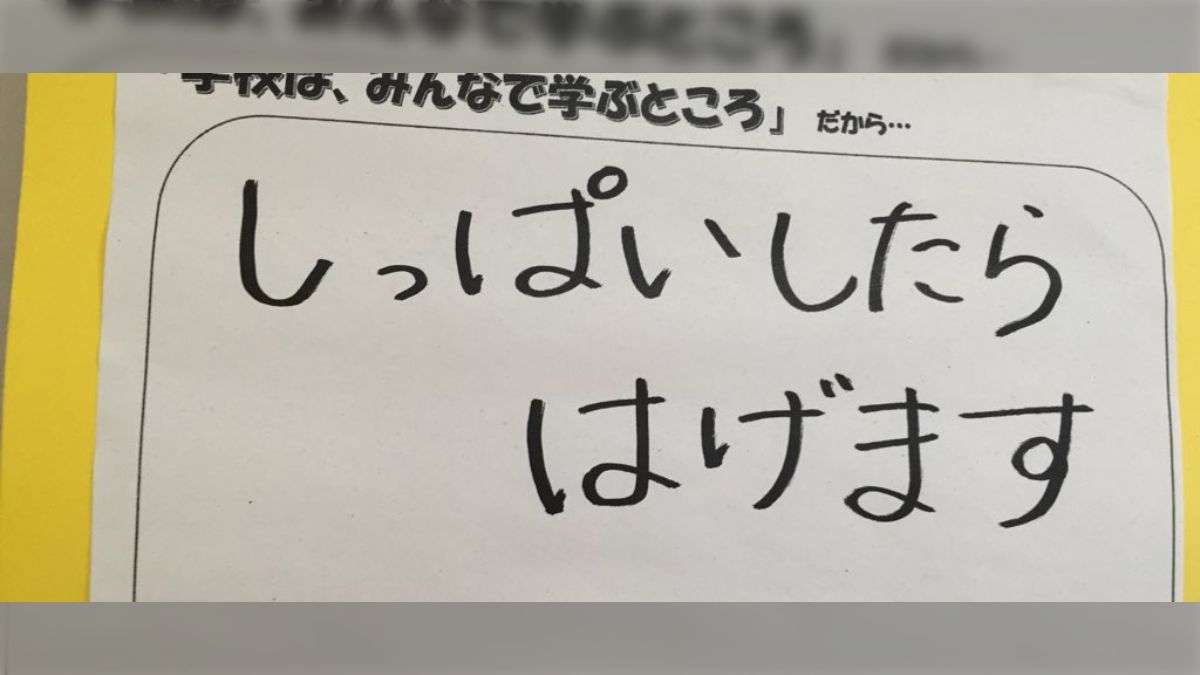 学校は、みんなで学ぶところ」 だから…
しっぱいしたら
はげます